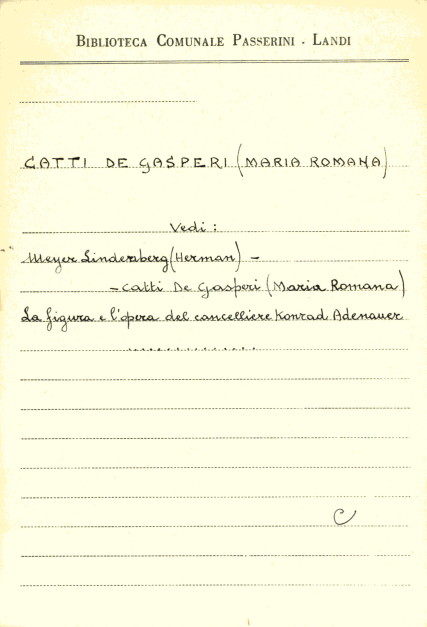 BIBLIOTECA COMUNALE PASSERINI - LANDI
CATTI DE GASPERI (MARIA ROMANA)
Vedi:
Meyer Lindenberg (Herman) -
- Catti De Gasperi (Maria Romana)
La figura e l'opera del cancelliere Konrad Adenauer
..............
C